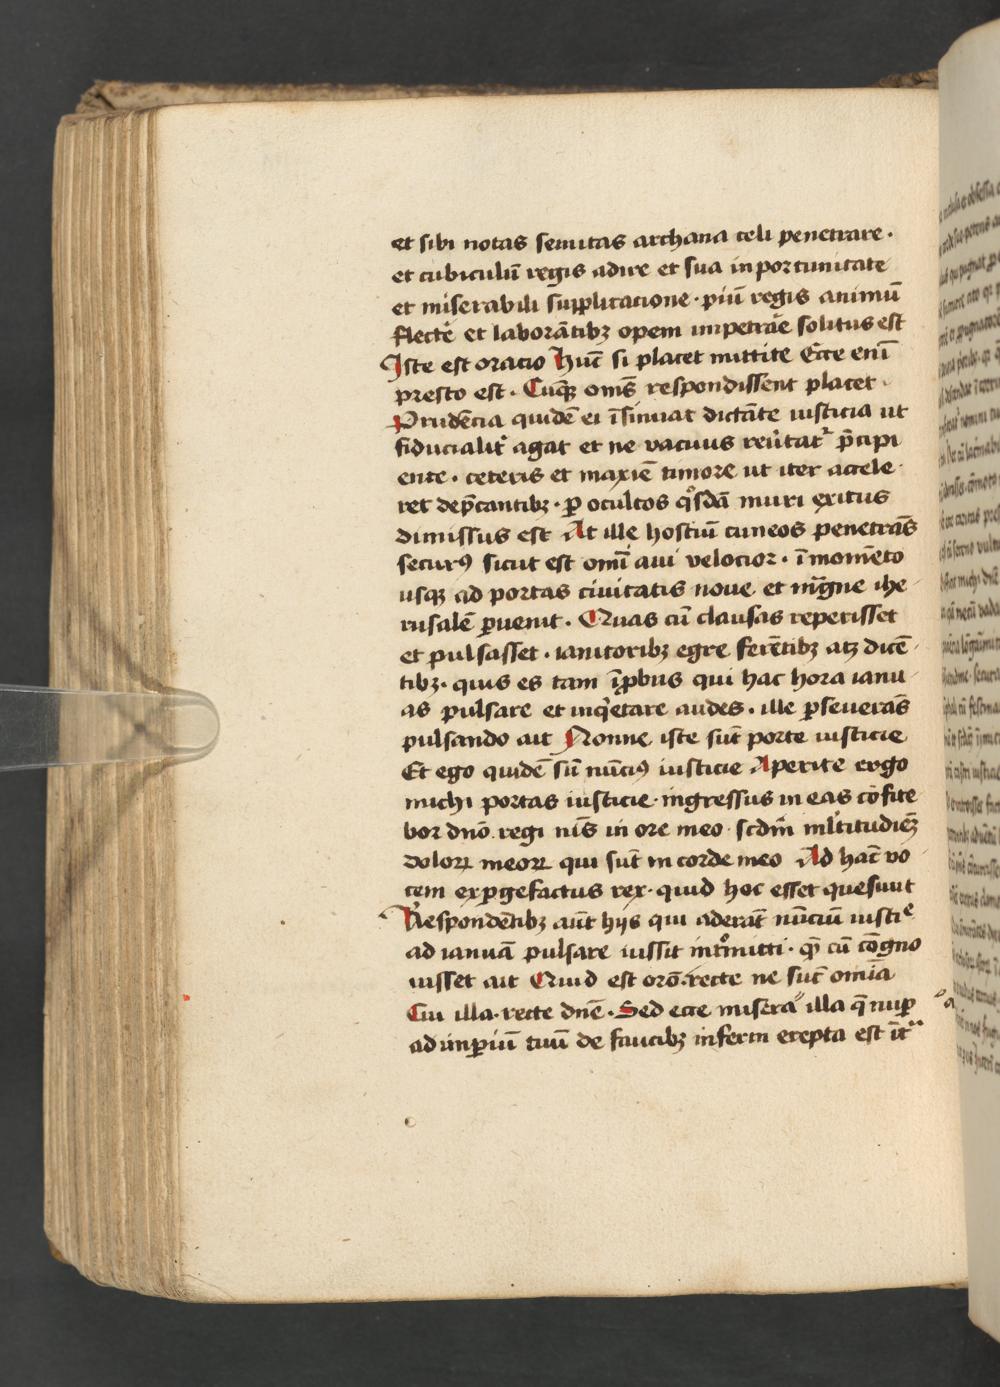 et sibi notas semitas archana celi penetrare ·
et cubiculū regis adire et sua inportunitate
et miserabili supplicacione · piū regis animū
flectē et laborātibꝫ opem impetrāe solitus est
Iste est oracio hūc si placet mittite Ecce enī
presto est · Cūqꝫ om̄s respondissent placet ·
Prudēcia quidē ei īsinuat dictāte iusticia ut
fiducialit̾ agat et ne vacuus reu̾tat᷑ p̄cipi
ente · ceteris et maxīe timore ut iter accele-
ret dep̄cantibꝫ · ꝑ ocultos qͦsdā muri exitus
dimissus est At ille hostiū cuneos penetrās
securꝰ sicut est omī aui velocior · ī momēto
usqꝫ ad portas ciuitatis noue et mīgne ihe
rusalē ꝑuenit · Quas cū clausas reperisset
et pulsasset · ianitoribꝫ egre ferētibꝫ atqꝫ dicē-
tibꝫ · quis es tam īꝓbus qui hac hora ianu-
as pulsare et inqͥetare audes · ille ꝑseuerās
pulsando ait Nonne iste sūt porte iusticie
Et ego quidē sū nūciꝰ iusticie Aperite ergo
michi portas iusticie · ingressus in eas cōfite
bor dn̄o regi nr̄is in ore meo · scdm̄ ml̾titudiēꝫ
doloꝝ meoꝝ qui sūt in corde meo Ad hāc vo
cem exꝑgefactus rex · quid hoc esset quesiuit
Respondētibꝫ aūt hijs qui aderāt nūciū iusticͥe
ad ianuā pulsare iussit intͦmitti · qē cū cōgno
uisset ait Quid est orō. recte ne sūt omīa
Cui illa · recte dn̄e · Sed ecce misera illa q̄ nuꝑ
ad imꝑiū tuū de faucibꝫ inferni erepta est īt̾